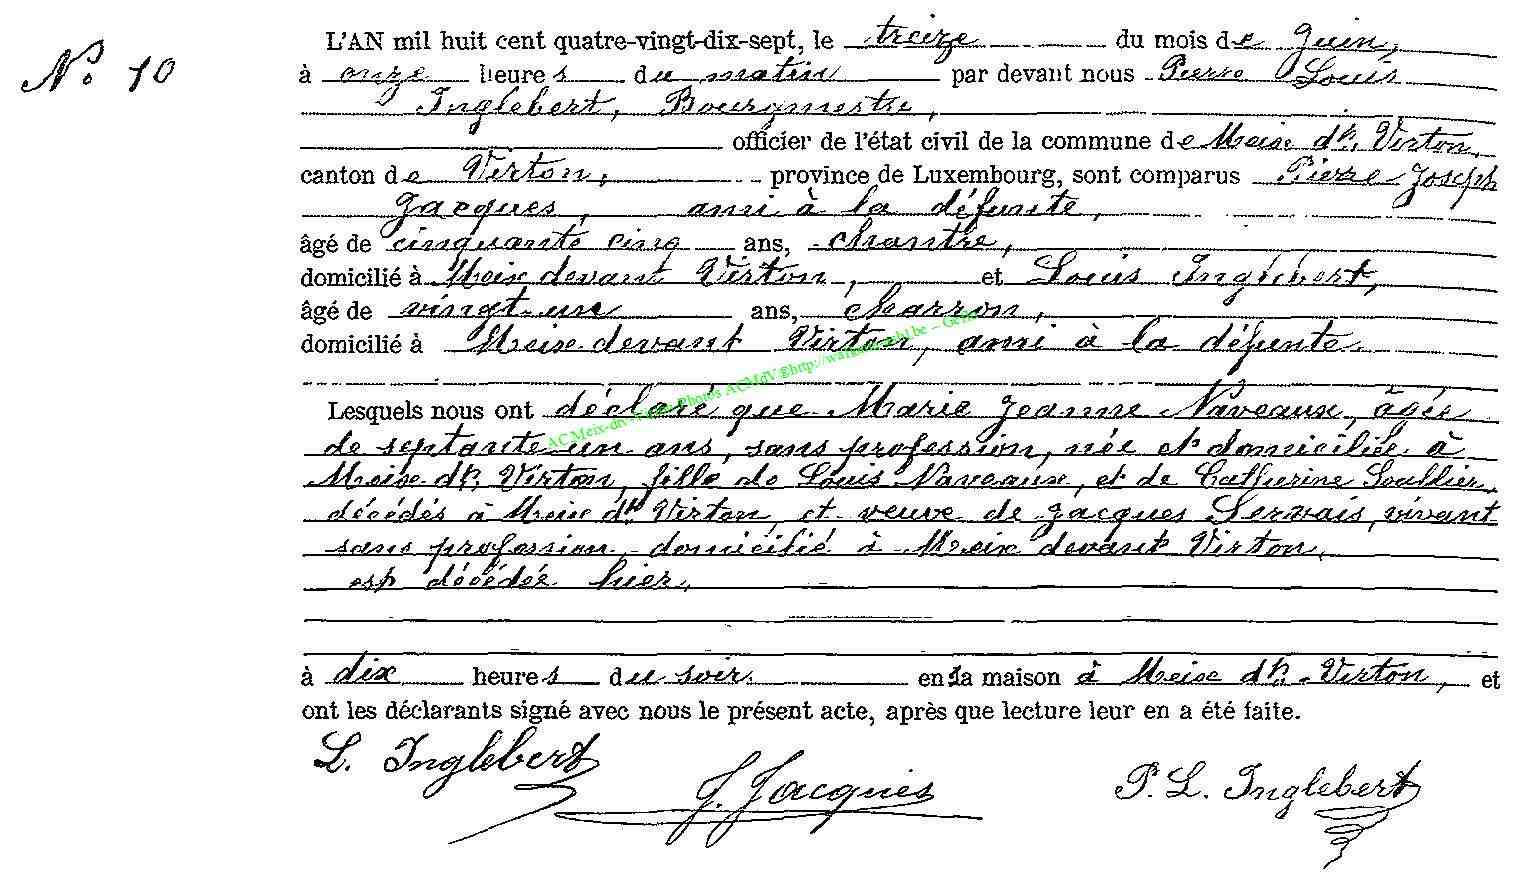 N° 10
L'AN mil huit cent quatre-vingt-dix-sept, le treize du mois de Juin,
à onze heures du matin par devant nous Pierre Louis
Inglebert, Bourgmestre,
officier de l'état civil de la commune de Meix dt. Virton,
canton de Virton, province de Luxembourg, sont comparus Pierre Joseph
Jacques, ami à la défunte,
âgé de cinquante cinq ans, chantre,
domicilié à Meix devant Virton, et Louis Inglebert,
âgé de vingt-un ans, charron,
domicilié à Meix devant Virton, ami à la défunte.
Lesquels nous ont déclaré que Marie Jeanne Naveaux, âgée
de septante un ans, sans profession, née et domiciliée à
Meix dt. Virton, fille de Louis Naveaux, et de Catherine Soullier,
décédés à Meix dt Virton, et veuve de Jacques Servais, vivant
sans profession, domicilié à Meix devant Virton,
est décédée hier,
à dix heures du soir en sa maison à Meix dt. Virton, et
ont les déclarants signé avec nous le présent acte, après que lecture leur en a été faite.
L. Inglebert J. Jacques P. L. Inglebert